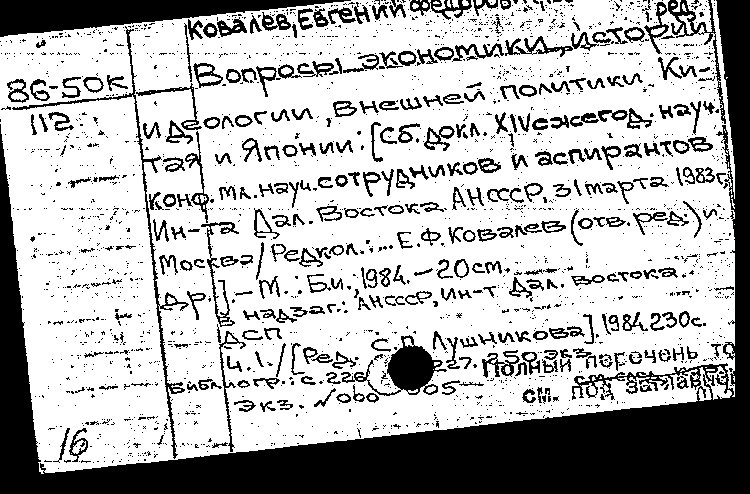 Ковалев, Евгений Федорович ред.
86-50к
Вопросы экономики, истории,
112
идеологии, внешней политики Ки-
тая и Японии: [Сб. докл. XIV ежегод. науч.
конф. мл. науч. сотрудников и аспирантов
Ин-та Дал. Востока АН СССР, 31 марта 1983г,
Москва / Редкол.: ... Е.Ф. Ковалев (отв. ред.) и
др.]. - М.: Б.и., 1984. - 20 см.
В надзаг.: АН СССР, Ин-т Дал. Востока.
ДСП
Ч. 1. / [Ред. С.П. Лушникова]. 1984. 230с.
Библиогр.: с. 226 227. 250 экз.
Экз. № 060 005
Полный перечень то
см. под заглавной
16